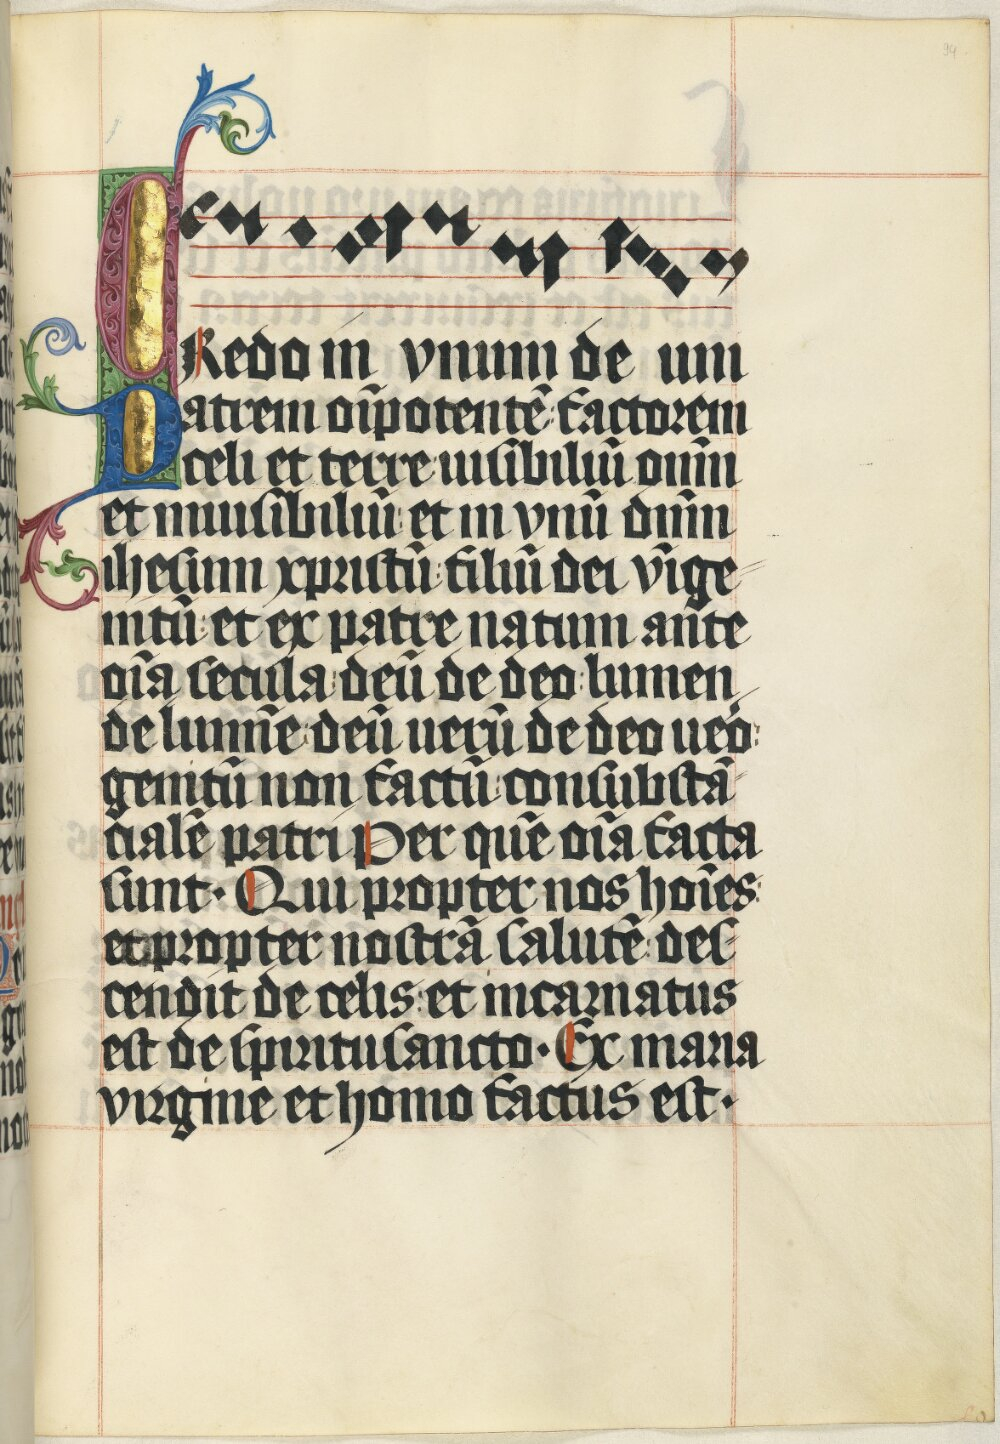 94
CRedo in vnum de um
Patrem oīpotentē: factorem
celi et terre: uisibiliū om̄
et inuisibiliū: et in vnū dn̄m
ihesum xpristū: filiū dei vīge
nitū: et ex patre natum ante
oīa secula: deū de deo: lumen
de lumīe: deū uerū de deo ueo:
genitū non factū: consubstā
cialē patri Per quē oīa facta
sunt. Qui propter nos hoīes:
et propter nostrā salutē: des
cendit de celis: et incarnatus
est de spiritusancto. Ex maria
virgine et homo factus est.